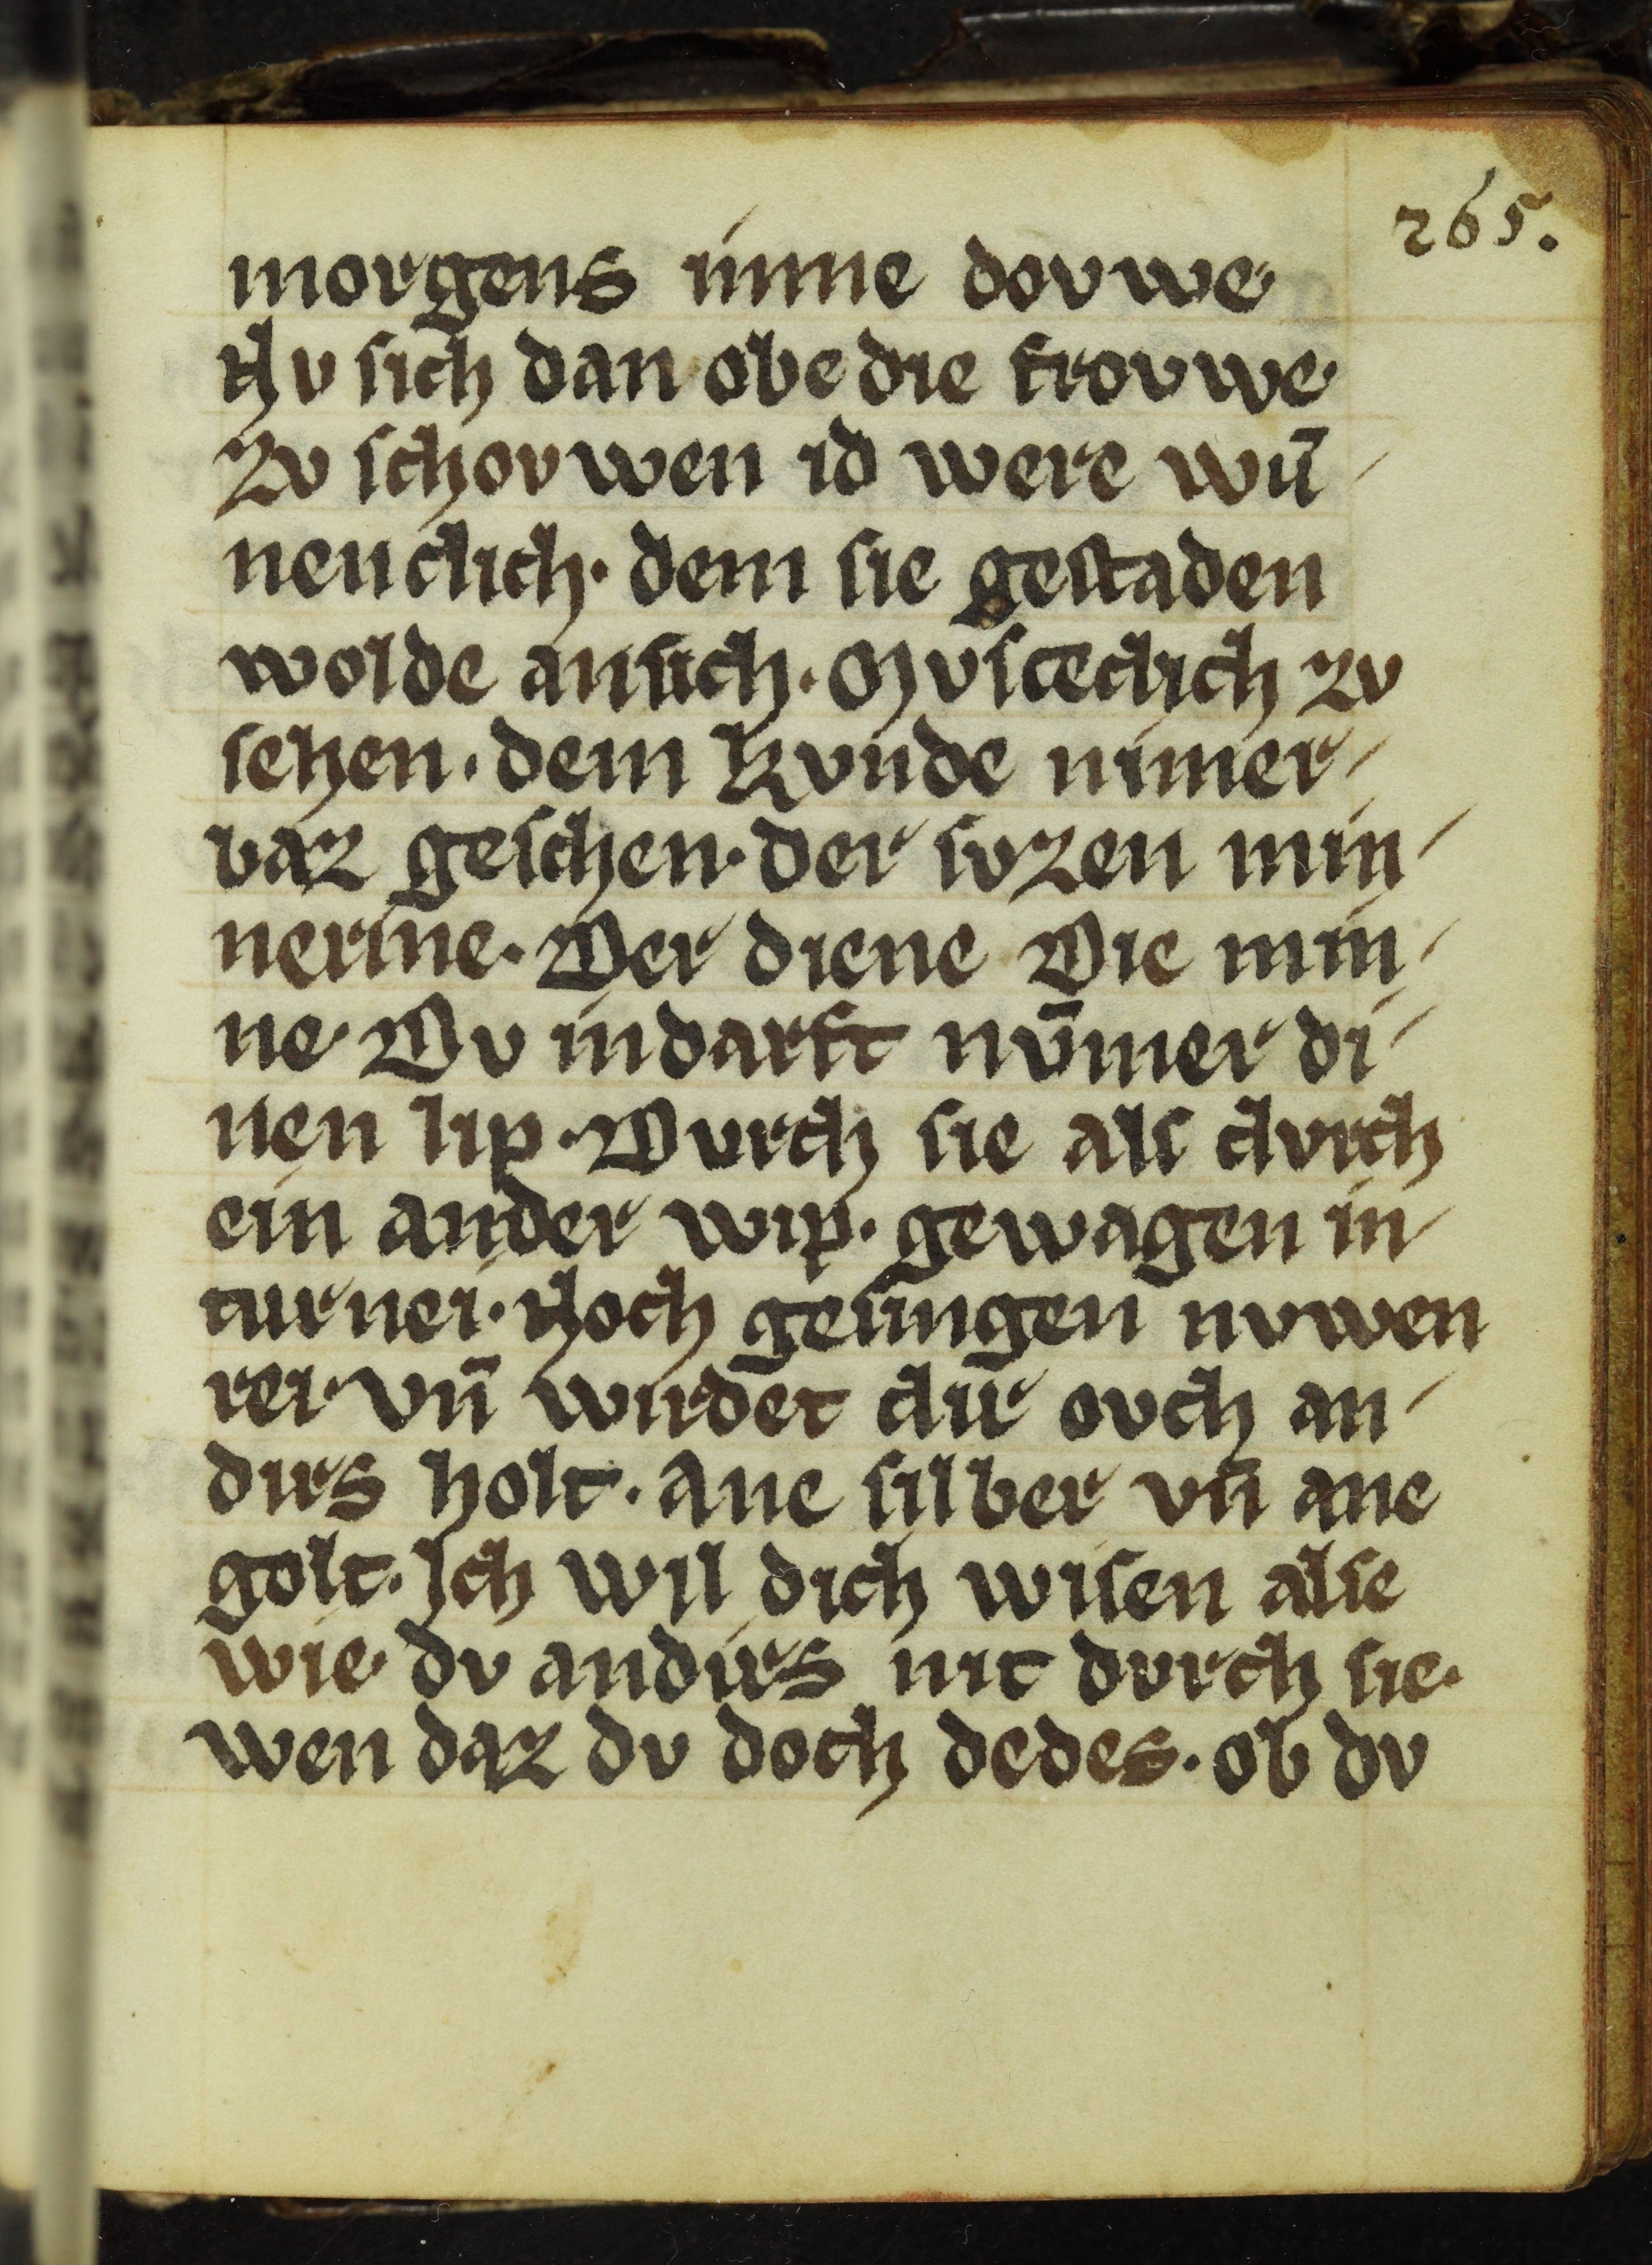 265.
morgens imme dovwe·
Nv sich dan obe die frovwe·
Zv schovwen id were wū-
neuclich· dem sie gestaden
wolde ansich· Mvsteclich zv
sehen· dem kvnde nimer-
baz geschen· der svzen min-
nerinne· Der diene Die min-
ne· Dv indarft nv̄mer di-
nen lip· Durch sie als dvrch
ein ander wip· gewagen in-
turnei· Noch gesingen nvwen
rei· vn̄ wirdet dir ovch an-
dirs holt· Ane silber vn̄ ane
golt· Ich wil dich wisen alse
wie· dv andirs nit dvrch sie·
wen daz dv doch dedes· ob dv